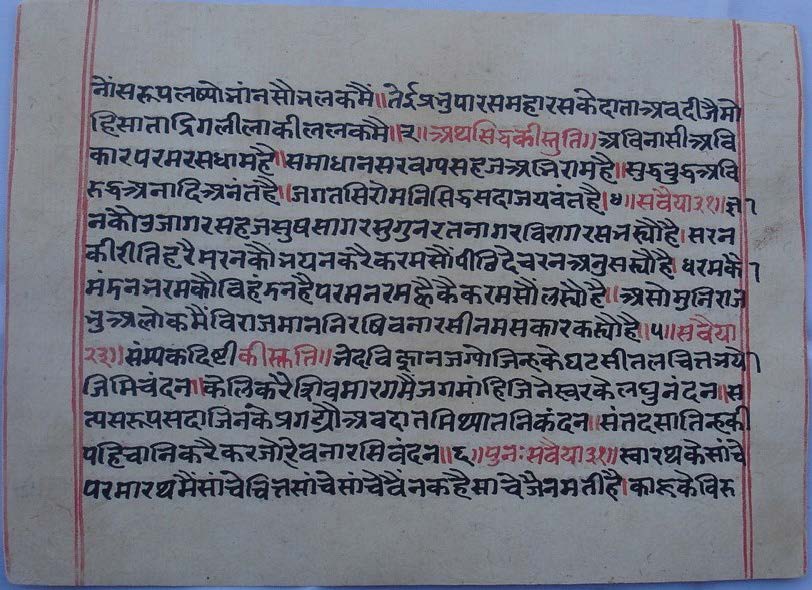 नोंसरूपलष्योभांनसौभलकमैं॥तेईप्रभुपारसमहारसकेदाताअवदीजैमो
हिसाताद्रिगलीलाकीललकमै॥३॥अथसिद्धकीस्तुति॥अविनासीअवि
कारपरमरसधामहै॥समाधानसरवग्यसहजअभिरामहै॥सुद्धबुद्धअवि
रुद्धअनादिअनंतहै॥जगतसिरोमनिसिद्धसदाजयवंतहै॥४॥सवैया३१॥ग्या
नकौउजागरसहजसुषसागरसुगुनरतनागरविरागरसभस्यौहै।सरन
कीरीतिहरैमरनकौभयनकरैकरमसौंपीठिदेचरनअनुसस्यौहै।धरमकौ
मंडनभरमकौविहंडनहैपरमनरमह्वैकैकरमसौंलस्यौहै॥असोमुनिराज
भुअलोकमैंविराजमाननिरषिवनारसीनमसकारकस्यौहै॥५॥सवैया
२३॥संम्यकदिष्टीकीस्तुति॥भेदविज्ञानजग्योजिन्हकेघटसीतलचित्तभयो
जिमिचंदन॥केलिकरैशिवमारगमैजगमांहिजिनेस्वरकेलघुनंदन॥स
त्यसरूपसदाजिनकैप्रगट्यौअवदातमिथ्यातनिकंदन॥संतदसातिन्हकी
पहिचानिकरैकरजोरिवनारसिवंदन॥६॥पुनःसवैया३१॥स्वारथकेसांचे
परमारथमैसांचेचित्तसांचेसांचेवैंनकहैसाचेजैनमतीहै।काहूकेविरु